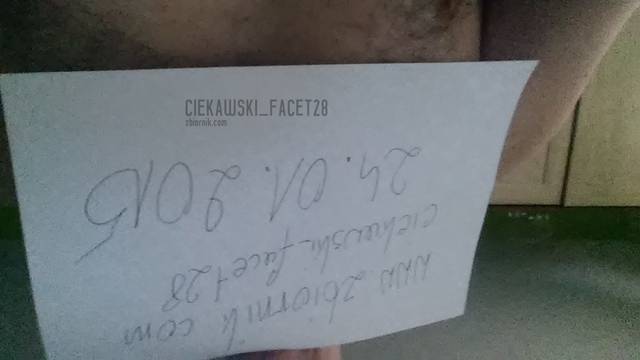 CIEKAWSKI_FACET28
zbiornik.com
www zbiornik com
ciekawski_facet28
24.01.2015